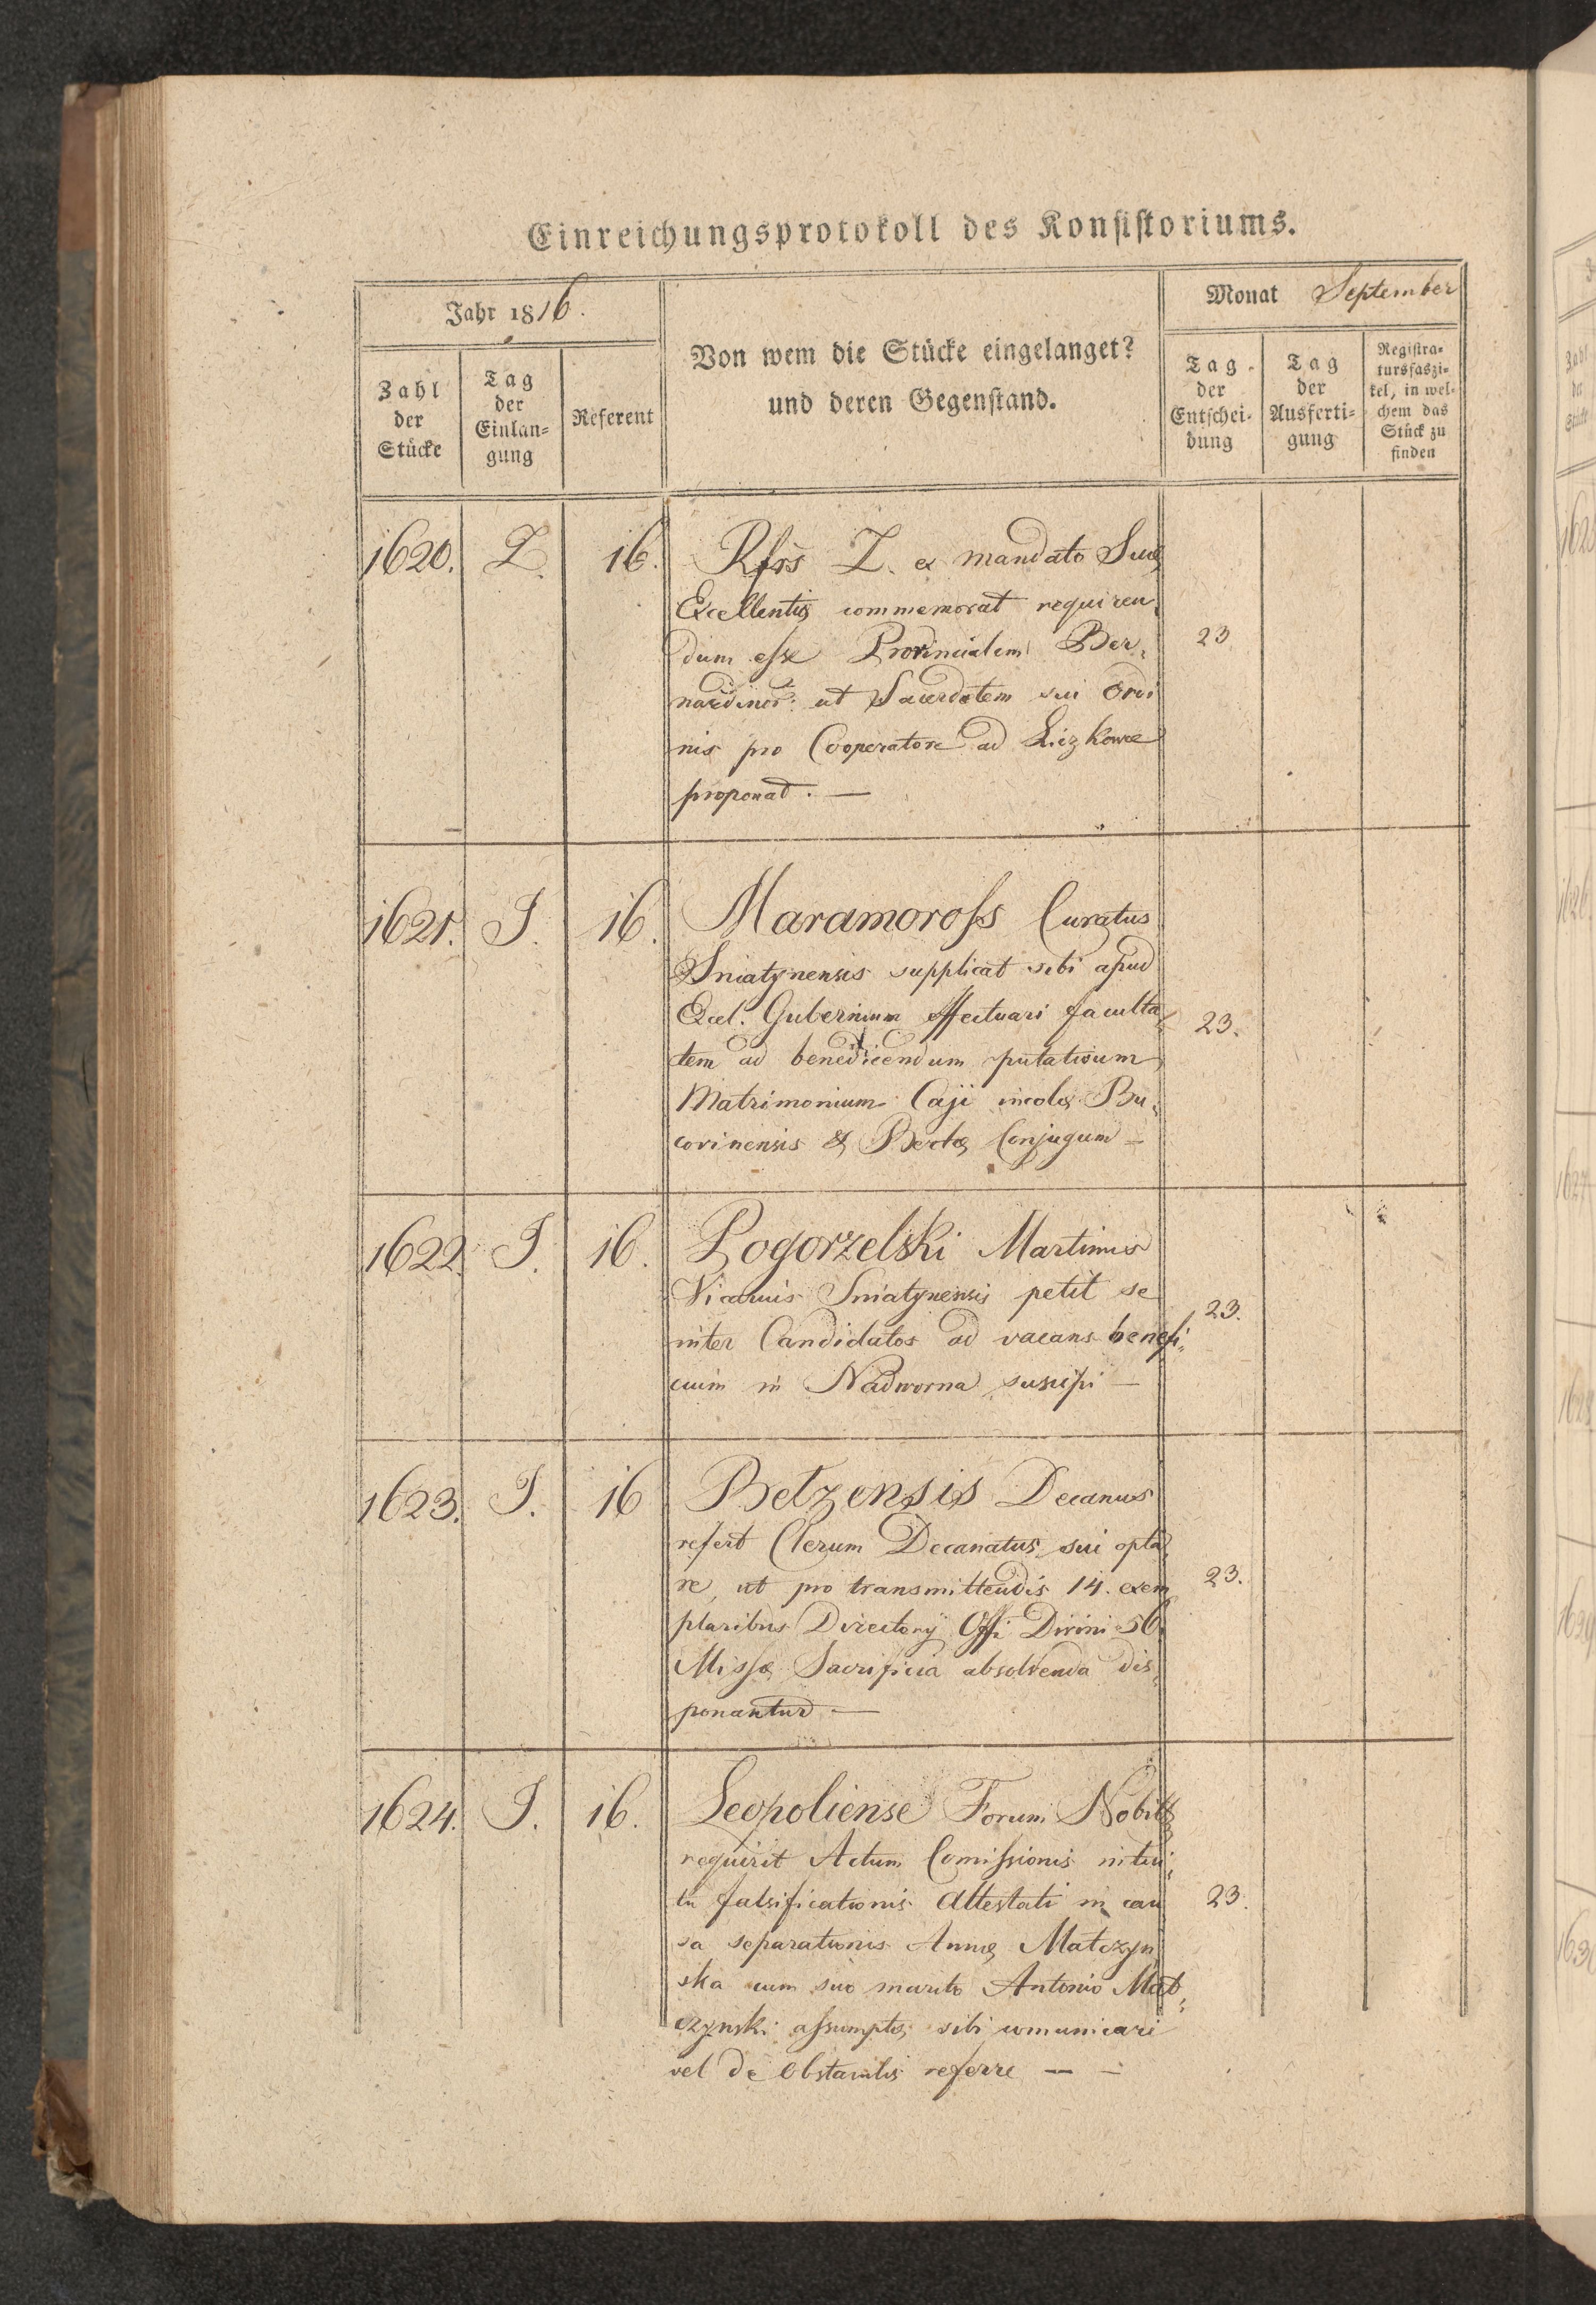 Einreichungsprotokoll des Konsistoriums.
Jahr 1816.
Monat September
Von wem die Stücke eingelanget?
und deren Gegenstand.
Zahl
der
Stücke
Tag
der
Einlan-
gung
Referent
Tag
der
Entschei-
dung
Tag
der
Ausferti-
gung
Registra-
tursfaszi-
kel, in wel-
chem das
Stück zu
finden
1620. Z. 16. Rfss Z. ex mandato Suæ
Excellentiæ commemorat requiren„
dum esse Provincialem Ber„ 23
nardinor: ut Sacerdotem sui Ordi
nis pro Cooperatore ad Liczkowce
proponat. —
1621. J. 16. Maramoross Curatus
Sniatynensis supplicat sibi apud
Excel. Gubernium effectuari faculta„ 23.
tem ad benedicendum putativum
Matrimonium Caji incolæ Bu„
covinensis & Bertæ Conjugum —
1622. J. 16. Pogorzelski Martinus
Vicarius Sniatynensis petit se
inter Candidatos ad vacans benefi„ 23.
cium in Nadworna suscipi —
1623. J. 16 Betzensis Decanus
refert Clerum Decanatus sui opta„
re, ut pro transmittendis 14. exem 23.
plaribus Directorij Offi Divini 56.
Missæ Sacrificia absolvenda dis„
ponantur —
1624. J. 16. Leopoliense Forum Nobil
requirit Actum Comissionis intui„
tu falsificationis Attestati in cau 23.
sa separationis Annæ Matczyn
ska cum suo marito Antonio Mat„
czynski assumptæ, sibi comunicari
vel de Obstaculis referre — —